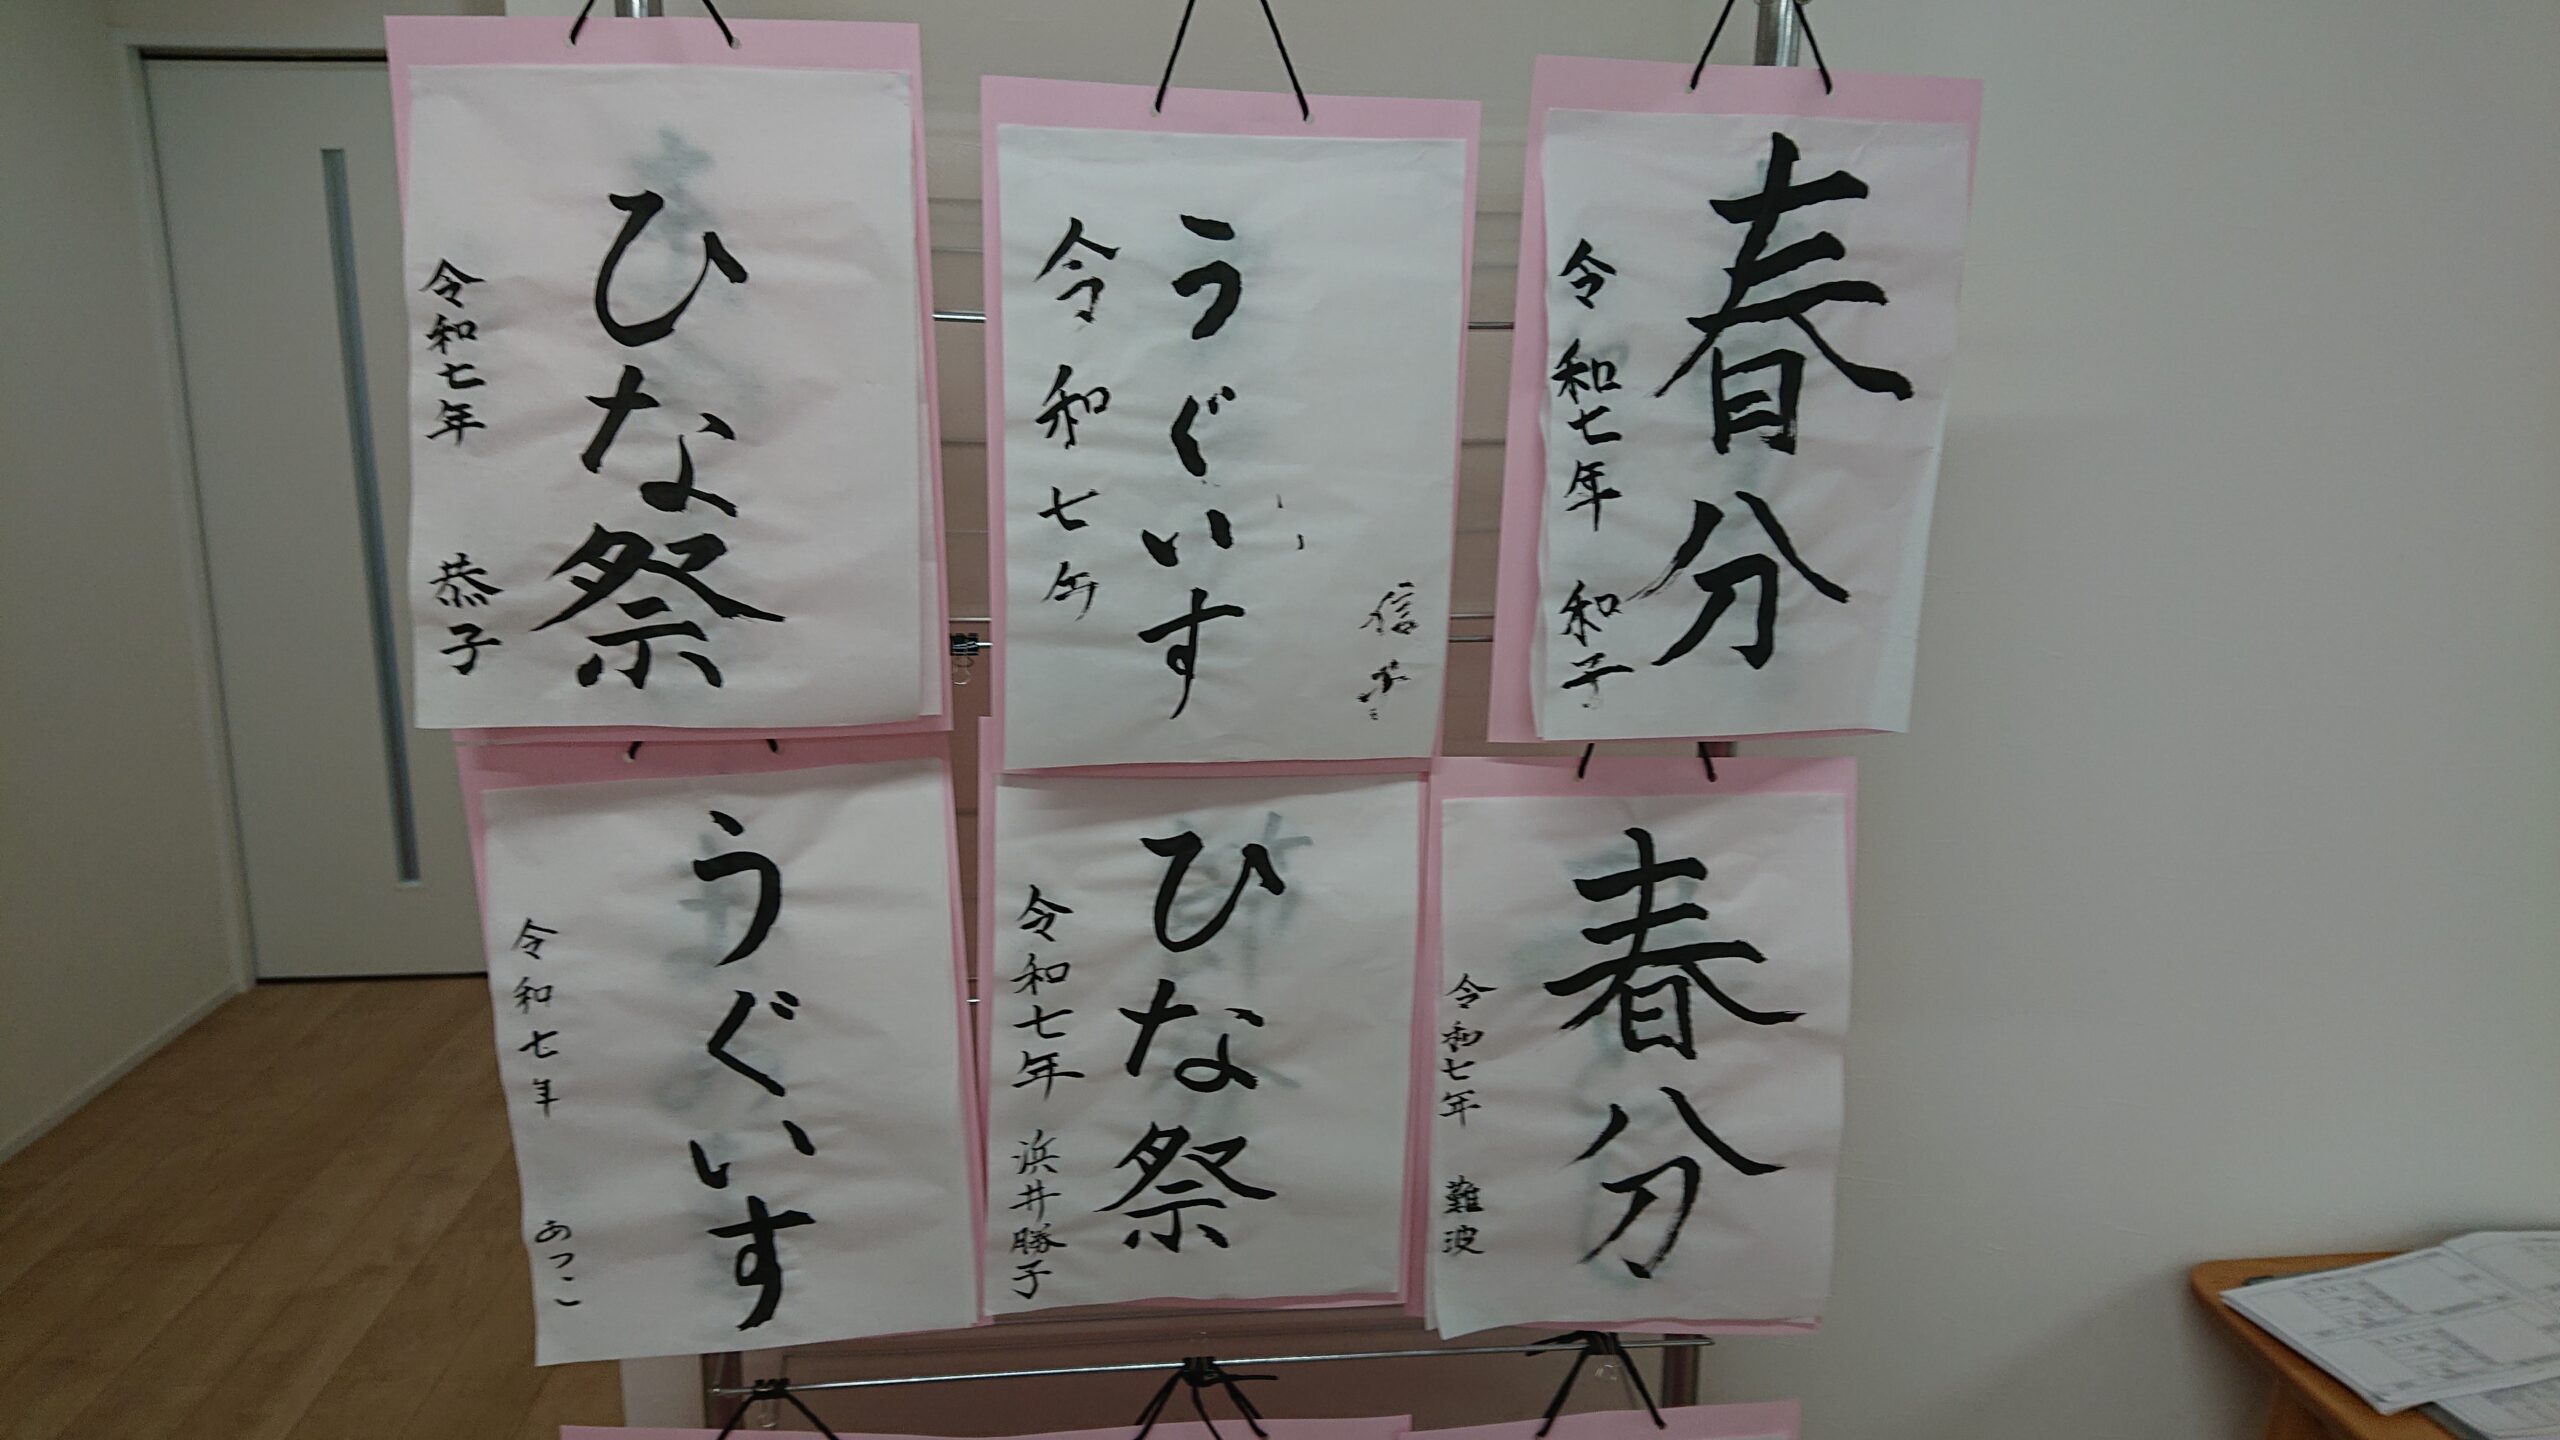 ひな祭
令和七年 恭子
うぐいす
令和七年
信
春分
令和七年 和子
うぐいす
令和七年 あつこ
ひな祭
令和七年 浜井勝子
春分
令和七年 難波